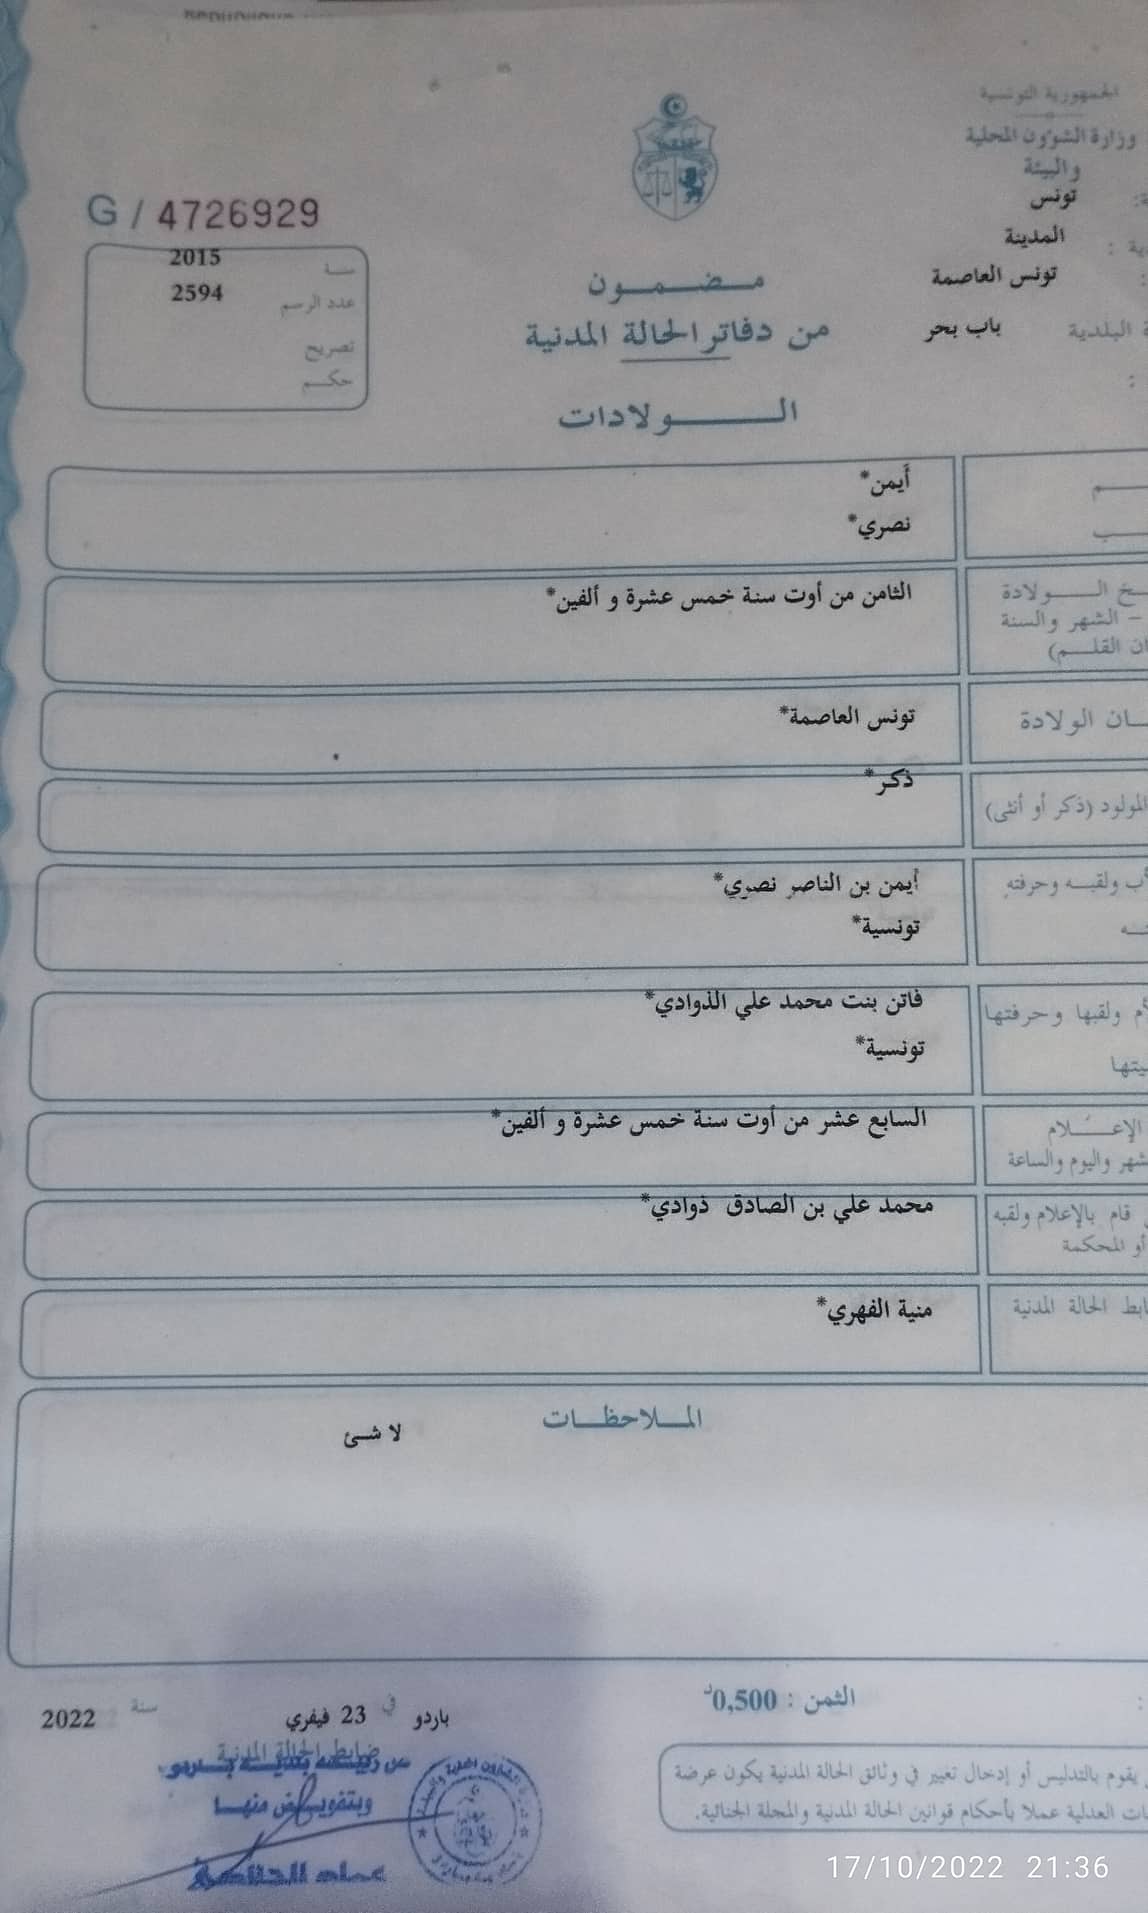 الجمهورية التونسية
وزارة الشؤون المحلية
والبيئة
تونس
المدينة
تونس العاصمة
البلدية باب بحر
G / 4726929
سنة 2015
عدد الرسم 2594
تصريح
حكم
مضمون
من دفاتر الحالة المدنية
الولادات
أيمن*
نصري*
الولادة الثامن من أوت سنة خمس عشرة و ألفين*
– الشهر والسنة
القلم)
الولادة تونس العاصمة*
ذكر*
المولود (ذكر أو أنثى)
ولقبه وحرفته أيمن بن الناصر نصري*
تونسية*
فاتن بنت محمد علي الذوادي*
ولقبها وحرفتها
تونسية*
السابع عشر من أوت سنة خمس عشرة و ألفين*
الإعلام
واليوم والساعة
محمد علي بن الصادق ذوادي*
قام بالإعلام ولقبه
أو المحكمة
الحالة المدنية منية الفهري*
الملاحظات
لا شئ
الثمن : 0,500د
باردو في 23 فيفري سنة 2022
ضابط الحالة المدنية
وبتفويض منها
يقوم بالتدليس أو إدخال تغيير في وثائق الحالة المدنية يكون عرضة
العدلية عملا بأحكام قوانين الحالة المدنية والمجلة الجنائية.
17/10/2022 21:36